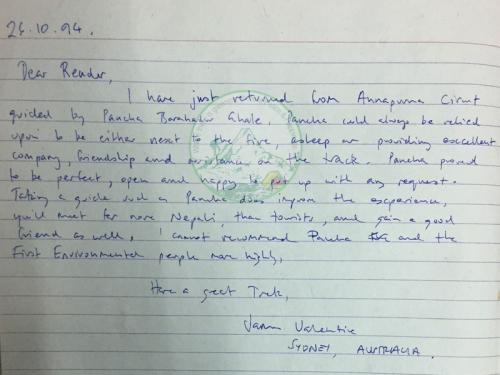 26.10.94.
Dear Reader,
I have just returned from Annapurna Circuit
guided by Pancha Ghale. Pancha could always be relied
upon to be either next to the fire, asleep or providing excellent
company, friendship and assistance on the track. Pancha proved
to be perfect, open and happy to put up with any request.
Taking a guide such as Pancha does improve the experience,
you'll meet far more Nepali, than tourists, and gain a good
friend as well. I cannot recommend Pancha and the
First Environmental people more highly.
Have a great Trek,
Valentine
SYDNEY, AUSTRALIA.